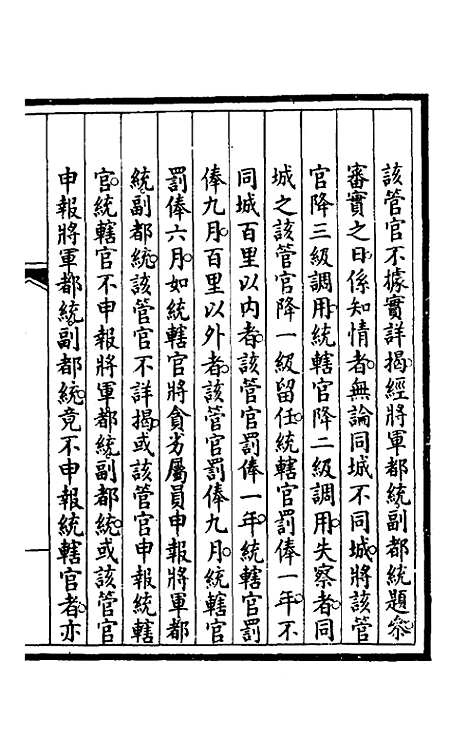 該管官不據實詳揭經將軍都統副都統題叅
審實之日係知情者無論同城不同城將該管
官降三級調用統轄官降二級調用失察者同
城之該管官降一級留任統轄官罰俸一年不
同城百里以內者該管官罰俸一年統轄官罰
俸九月百里以外者該管官罰俸九月統轄官
罰俸六月如統轄官將貪劣屬員申報將軍都
統副都統該管官不詳揭或該管官申報統轄
官統轄官不申報將軍都統副都統或該管官
申報將軍都統副都統竟不申報統轄官者亦